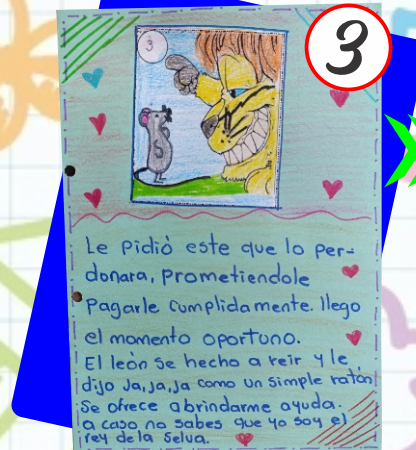 3
3
Le pidió este que lo per-
donara, prometiendole
Pagarle cumplidamente. llego
el momento oportuno.
El león se hecho a reir y le
dijo Ja, ja, ja como un simple ratón
Se ofrece abrindarme ayuda.
a caso no sabes que yo soy el
rey de la Selva.